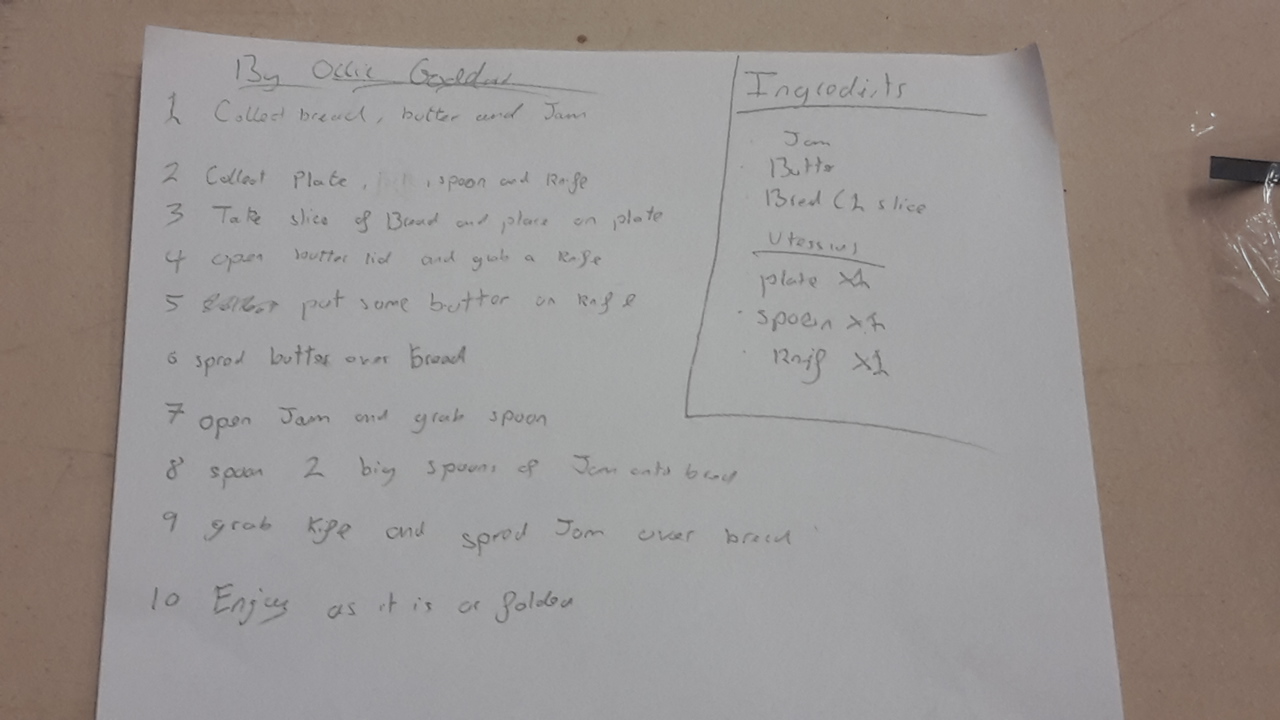 By Ollie
1 Collect bread, butter and Jam
2 Collect Plate, , spoon and Knife
3 Take slice of Bread and place on plate
4 open butter lid and grab a Knife
5 put some butter on Knife
6 spred butter over bread
7 open Jam and grab spoon
8 spoon 2 big spoons of Jam onto bread
9 grab Kife and spred Jam over bread
10 Enjoy as it is or folded
Ingredients
Jam
Butter
Bred (1 slice
plate x1
spoon x1
Knife x1